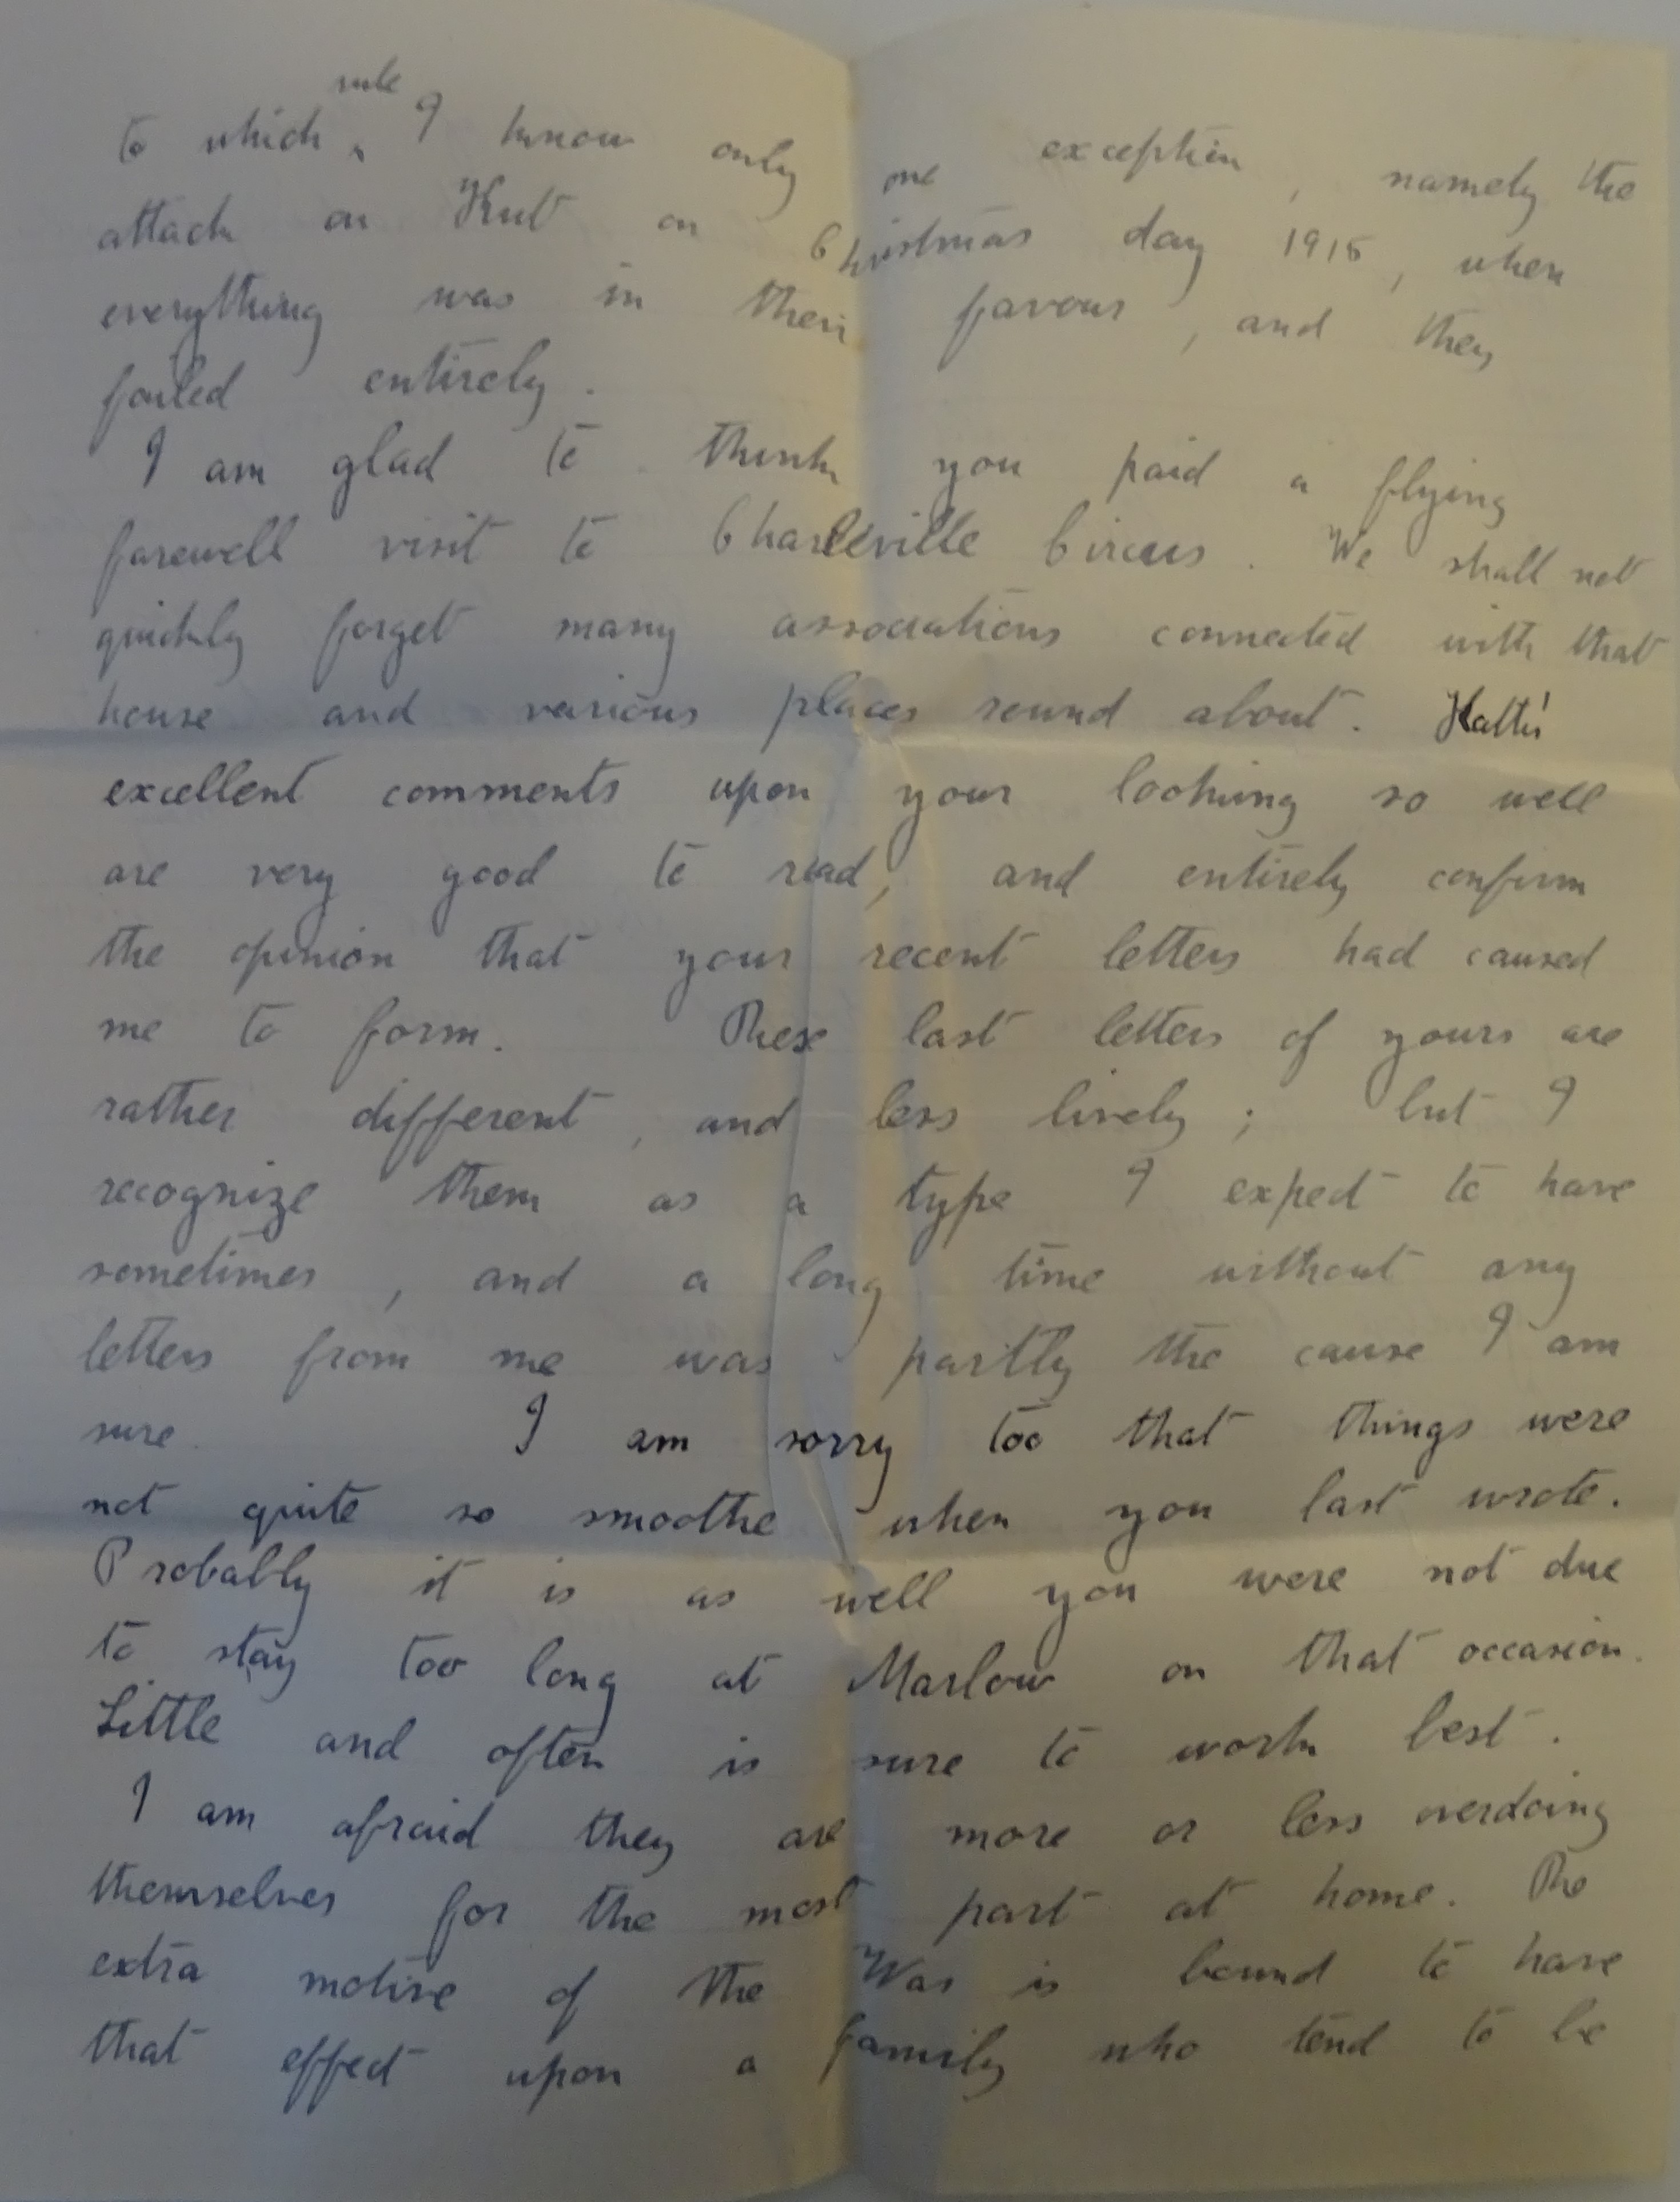 rule
to which ‸ I know only one exception, namely the
attack on Kut on Christmas day 1915, when
everything was in their favour, and they
failed entirely.
I am glad to think you paid a flying
farewell visit to Charleville Circus. We shall not
quickly forget many associations connected with that
house and various places round about.
excellent comments upon your looking so well
are very good to read, and entirely confirm
the opinion that your recent letters had caused
me to form. These last letters of yours are
rather different, and less lively; but I
recognize them as a type I expect to have
sometimes, and a long time without any
letters from me was partly the cause I am
sure. I am sorry too that things were
not quite so smoothe when you last wrote.
Probably it is as well you were not due
to stay too long at Marlow on that occasion.
Little and often is sure to work best.
I am afraid they are more or less overdoing
themselves for the most part at home. The
extra motive of the War is bound to have
that effect upon a family who tend to be